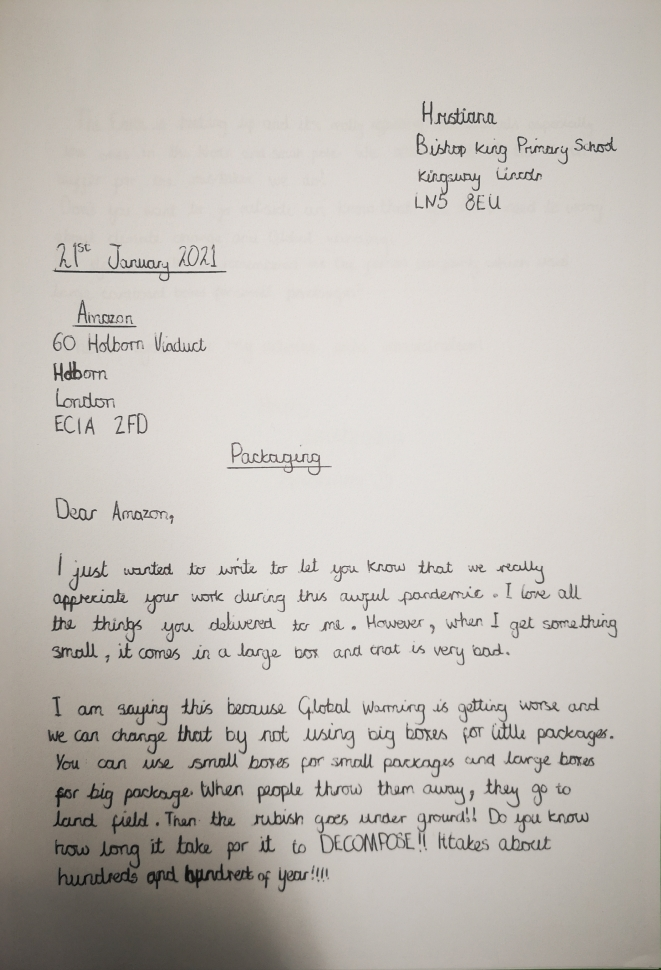 Hristiana
Bishop King Primary School
Kingsway Lincoln
LN5 8EU
21st January 2021
Amazon
60 Holborn Viaduct
Holborn
London
EC1A 2FD
Packaging
Dear Amazon,
I just wanted to write to let you know that we really
appreciate your work during this awful pandemic. I love all
the things you delivered to me. However, when I get something
small, it comes in a large box and that is very bad.
I am saying this because Global Warming is getting worse and
we can change that by not using big boxes for little packages.
You can use small boxes for small packages and large boxes
for big package. When people throw them away, they go to
land field. Then the rubish goes under ground!! Do you know
how long it take for it to DECOMPOSE!! It takes about
hundreds and hundreds of year!!!!